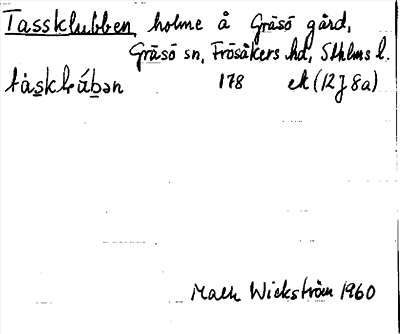 Tassklubben, holme å Gräsö gård,
Gräsö sn, Frösåkers hd, Sthlms l.
178 ek (12J8a)
Wickström 1960